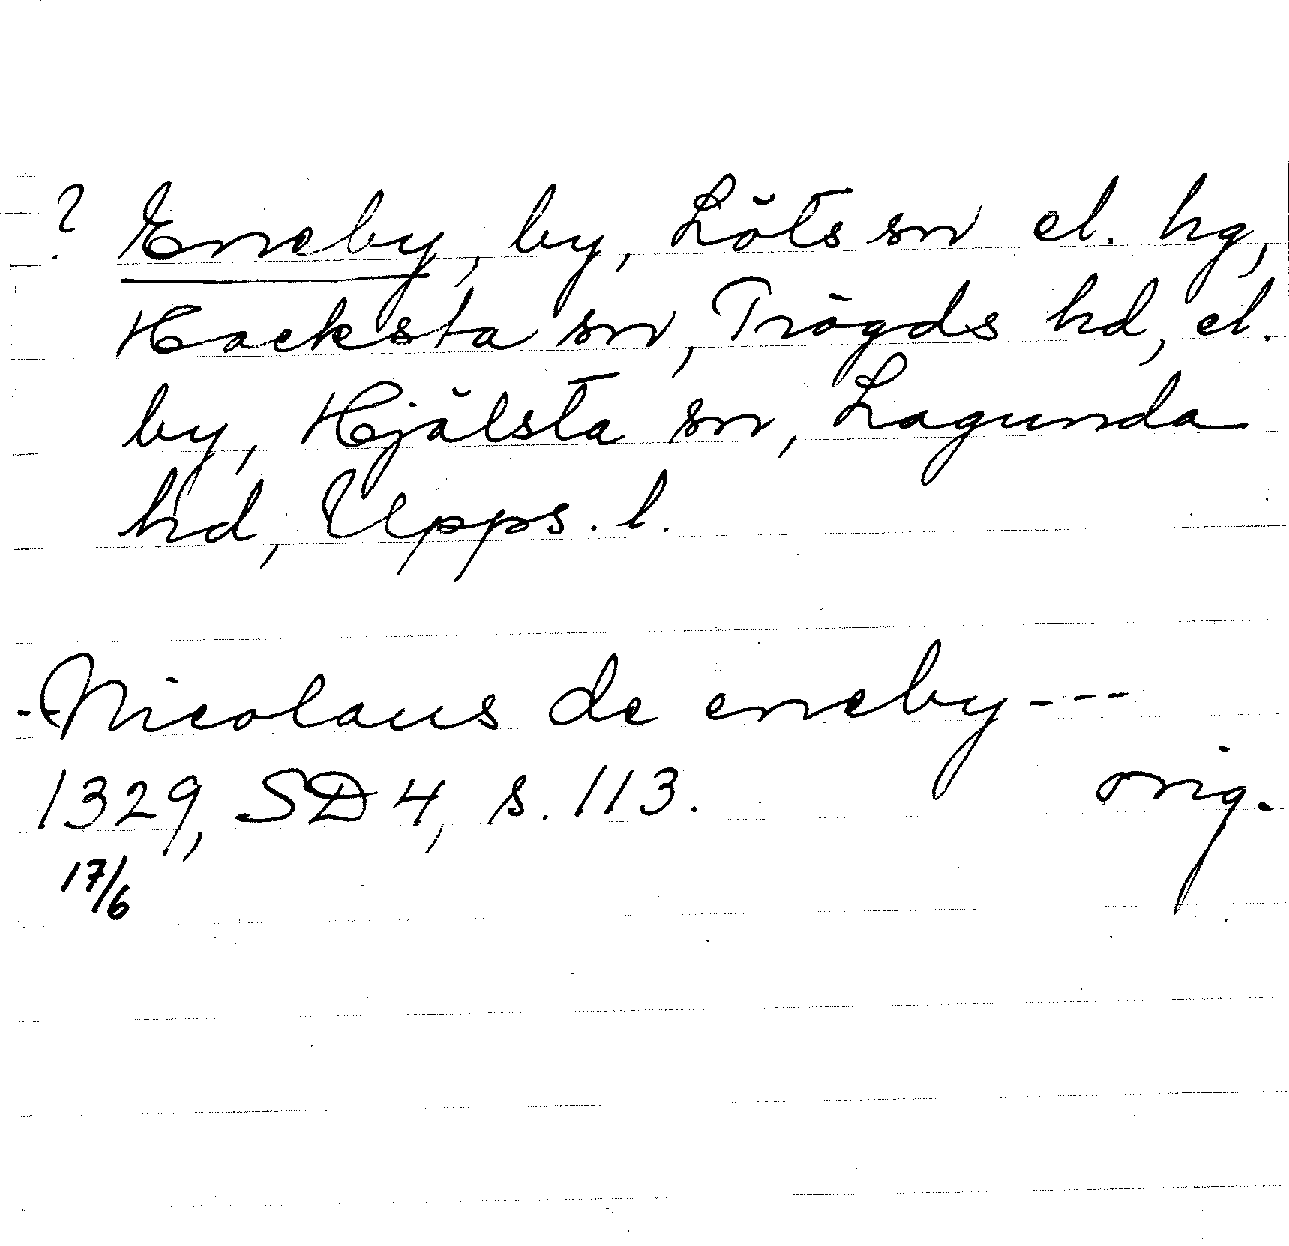 ? Eneby, by, Löts sn el. hg,
Hacksta sn, Trögds hd, el.
by, Hjälsta sn, Lagunda
hd, Upps. l.
Nicolaus de eneby ---
1329, SD 4, s. 113. orig.
17/6